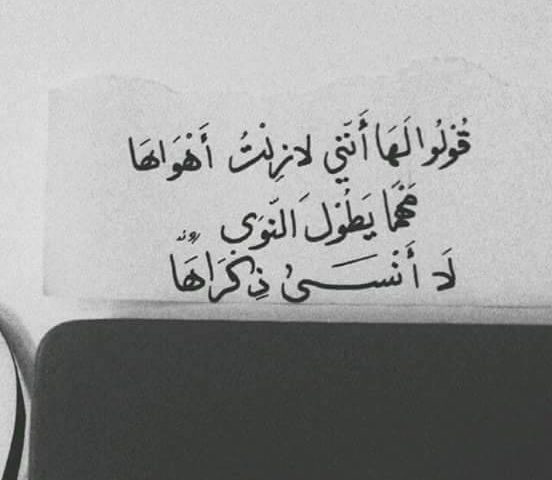 قُوْلُوا لَهَا أَنَّنِي لازِلْتُ أَهْوَاهَا
مَهْمَا يَطُوْل النّوَى
لَا أَنْسَىٰ ذِكْرَاهَا